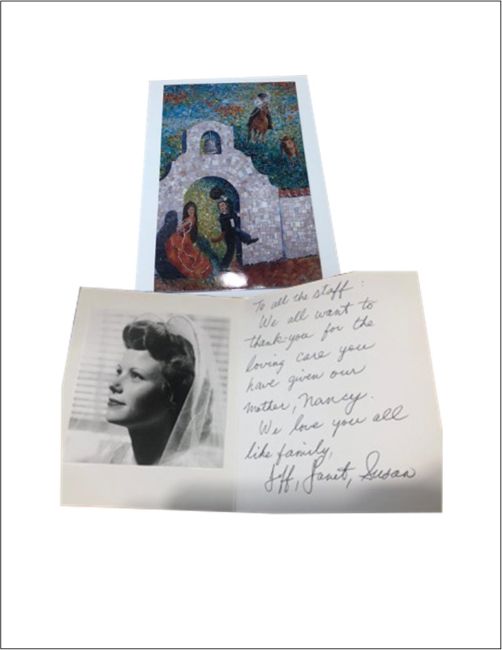 To all the staff:
We all want to
thank you for the
loving care you
have given our
mother, Nancy.
We love you all
like family,
Jeff, Janet, Susan